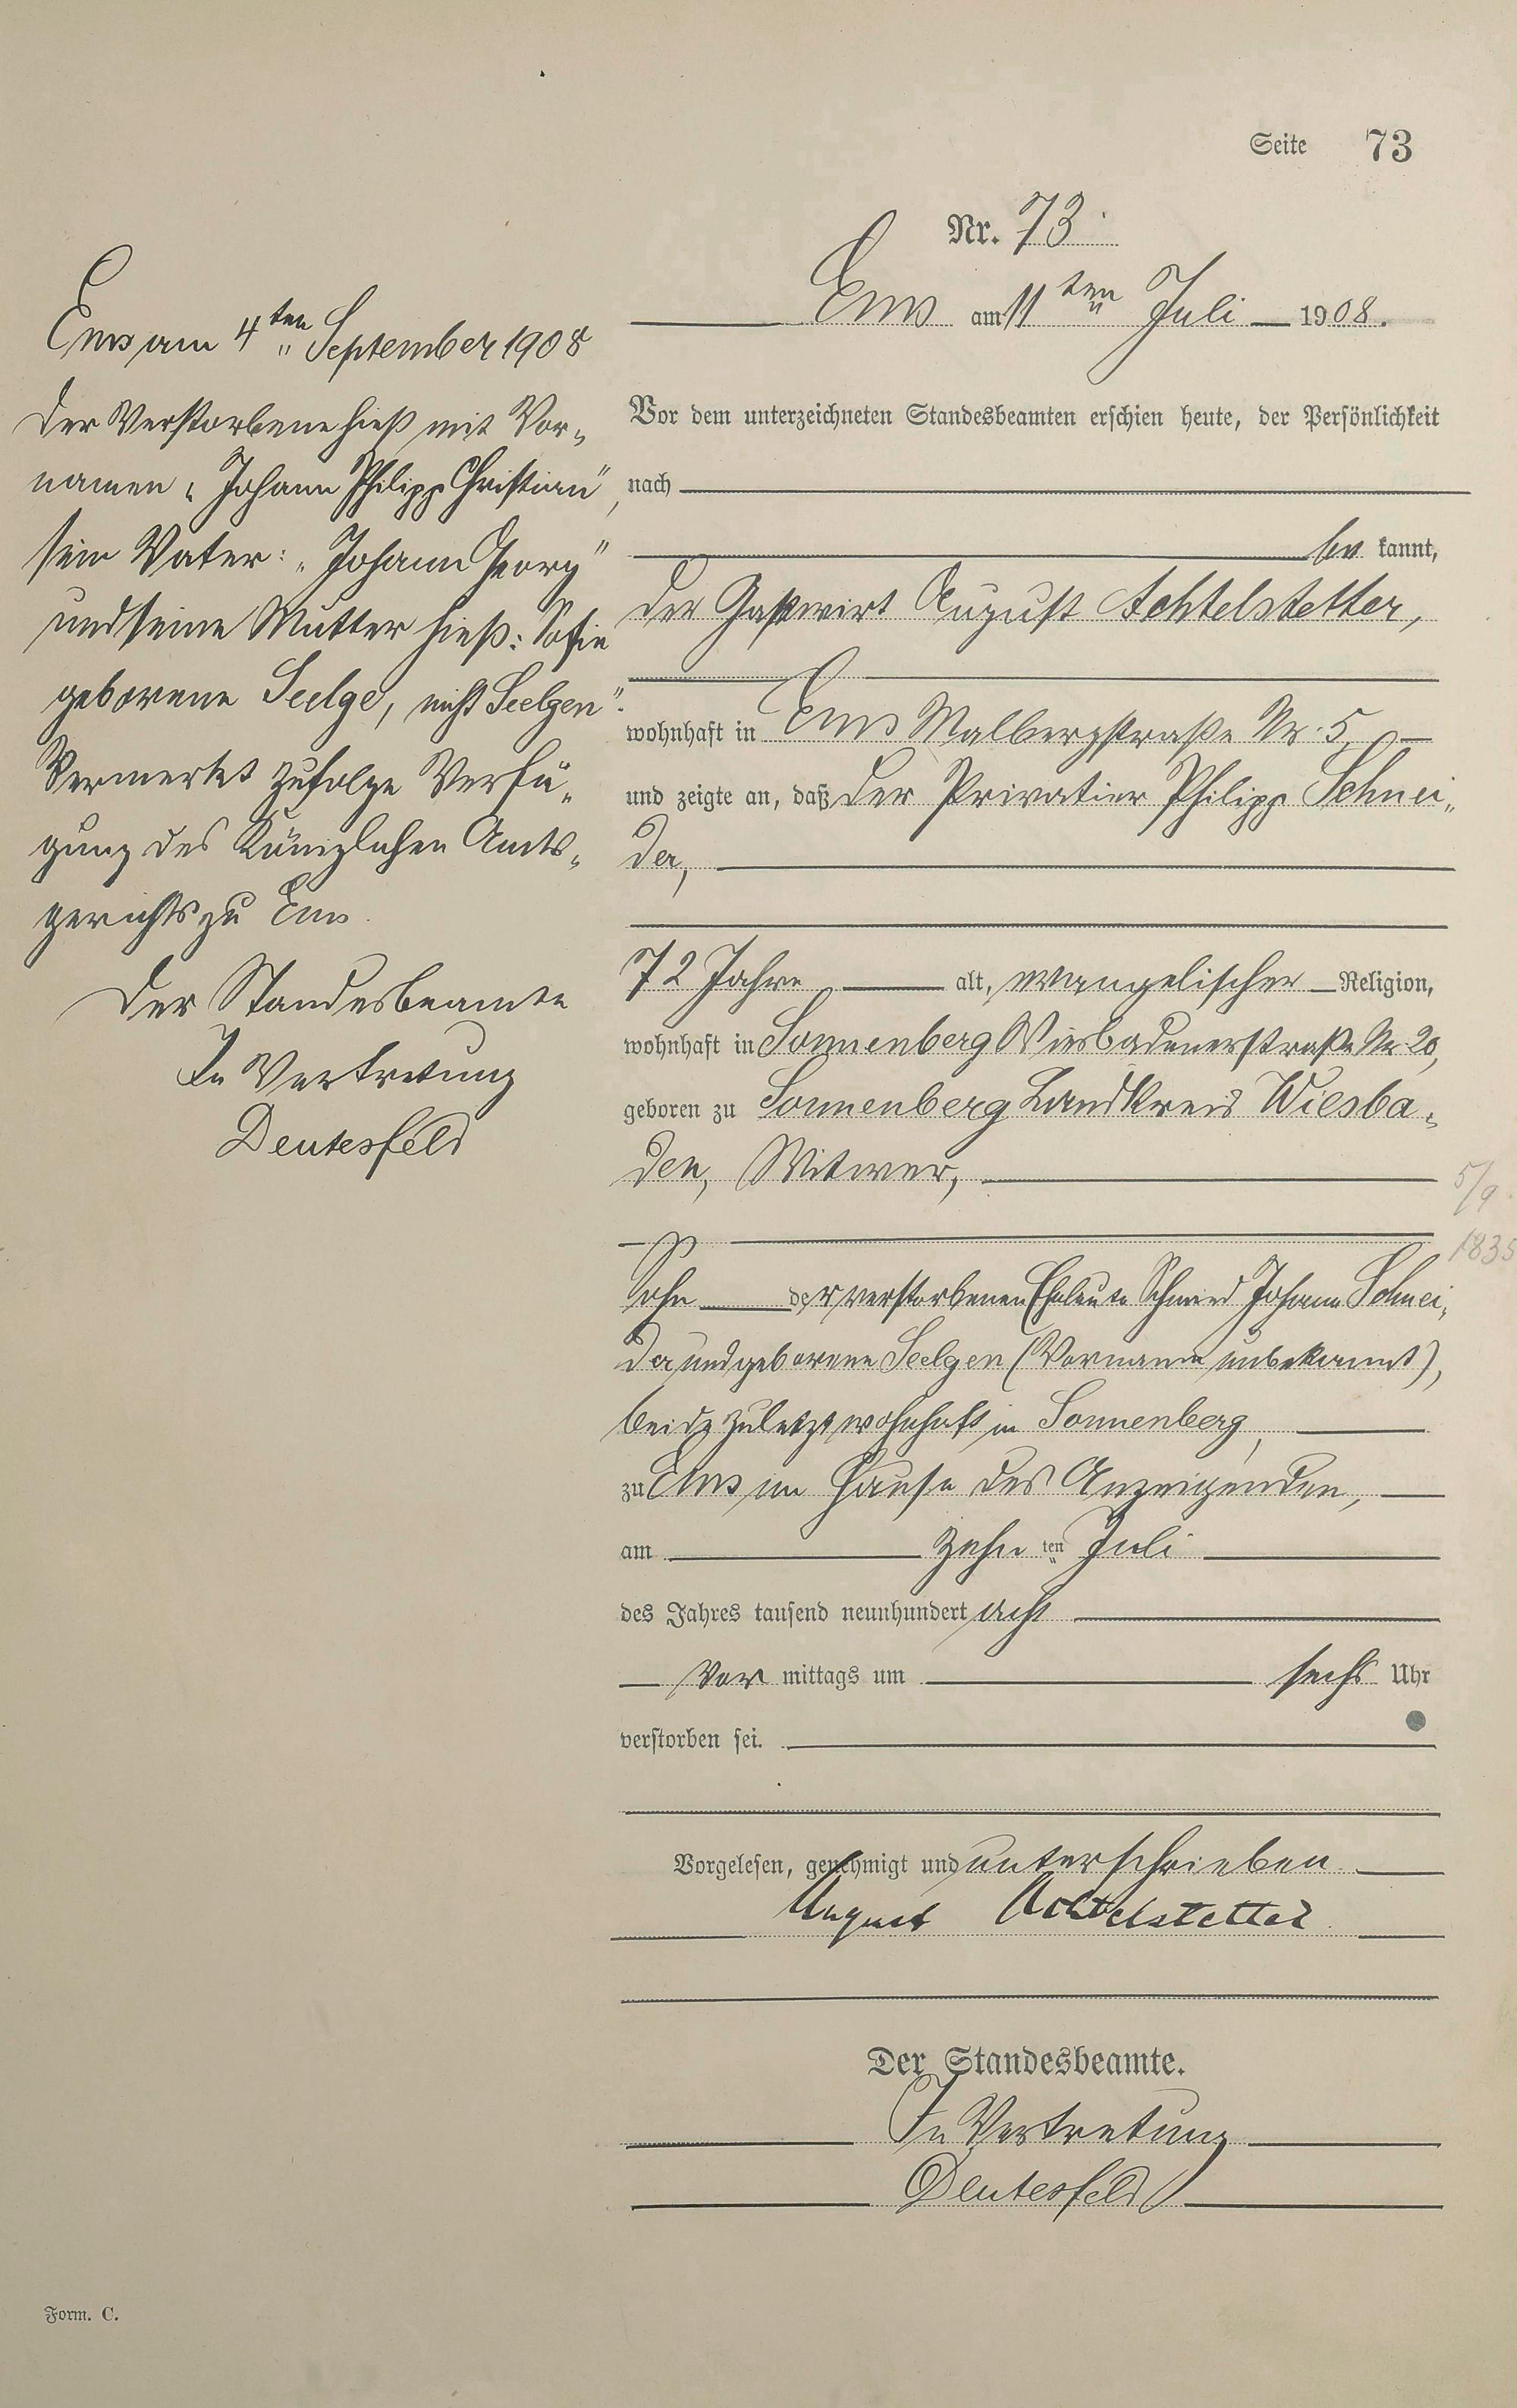 Seite 73
Nr. 73.
Ems am 11ten Juli 1908.
Vor dem unterzeichneten Standesbeamten erschien heute, der Persönlichkeit
nach
be kannt,
der Gastwirt August Achtelstetter,
wohnhaft in Ems Malbergstraße Nr. 5,
und zeigte an, daß der Privatier Philipp Schnei-
der,
72 Jahre alt, evangelischer Religion,
wohnhaft in Sonnenberg Wiesbadenerstraße Nr 20,
geboren zu Sonnenberg Landkreis Wiesba-
den, Witwer,
5/9
1835
Sohn der verstorbenen Eheleute Schmied Johann Schnei-
der und geborene Seelgen (Vorname unbekannt),
beide zuletzt wohnhaft in Sonnenberg,
zu Ems im Hause des Anzeigenden,
am zehnten Juli
des Jahres tausend neunhundert acht
Vor mittags um sechs Uhr
verstorben sei.
Vorgelesen, genehmigt und unterschrieben
August Achtelstetter
Der Standesbeamte.
In Vertretung
Deutesfeld
Ems am 4ten September 1908
Der Verstorbene hieß mit Vor-
namen „Johann Philipp Christian",
sein Vater: „Johann Georg"
und seine Mutter hieß: Sofie
geborene Seelge, nicht Seelgen".
Vermerket zufolge Verfü-
gung des Königlichen Amts-
gerichts zu Ems.
Der Standesbeamte
In Vertretung
Deutesfeld
Form. C.